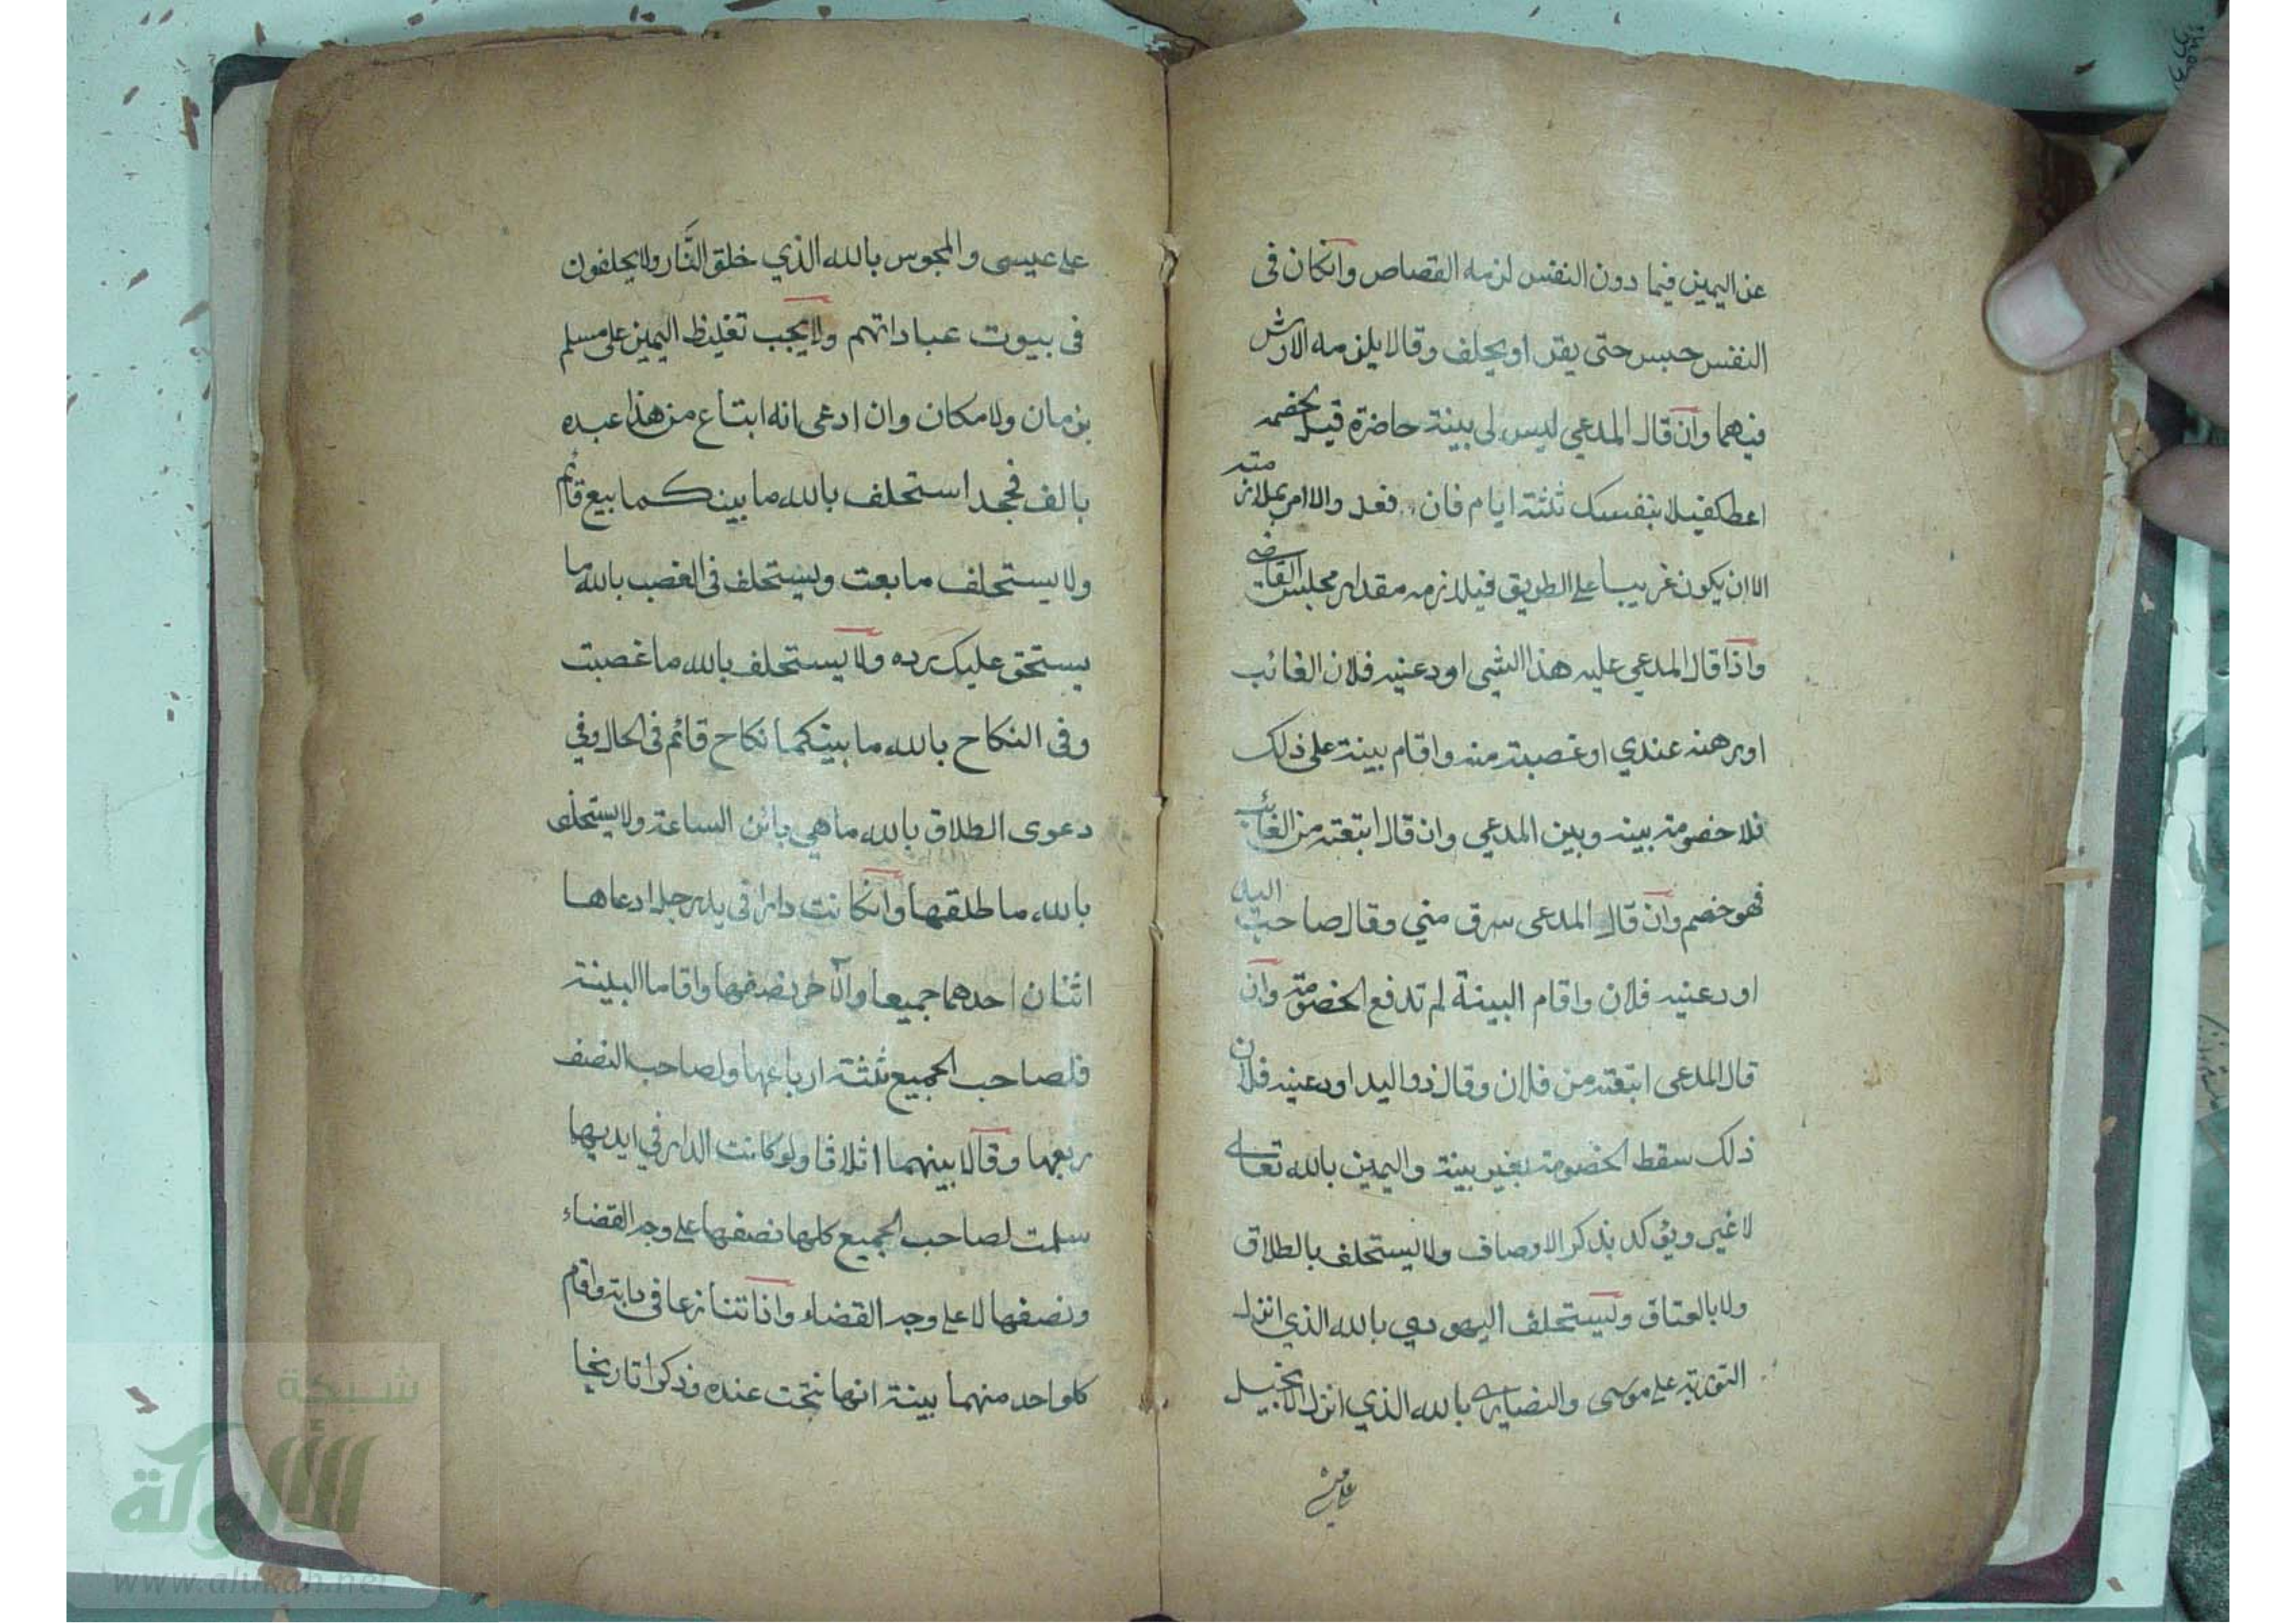 عن اليمين فيما دون النفس لزمه القصاص وانكان فى
النفس حبس حتى يقر او يحلف وقالا يلزمه الارش
فيهما وان قال المدعي ليس لى بينة حاضرة قيل لخصمه
اعط كفيلا بنفسك ثلثة ايام فان فعل والا امر بملازمته
الا ان يكون غريبا على الطريق فيلازمه مقدار مجلس القاضى
واذا قال المدعي عليه هذا الشيى اودعنيه فلان الغائب
او رهنه عندي او غصبته منه واقام بينة على ذلك
فلا خصومة بينه وبين المدعي وان قال ابتعته من الغائب
فهو خصم وان قال المدعى سرق مني وقال صاحب اليد
اودعنيه فلان واقام البينة لم تدفع الخصومة وان
قال المدعى ابتعته من فلان وقال ذو اليد اودعنيه فلان
ذلك سقط الخصومة بغير بينة واليمين بالله تعالى
لا غير ويؤكد بذكر الاوصاف ولا يستحلف بالطلاق
ولا بالعتاق وليستحلف اليهودي بالله الذي انزل
التورية على موسى والنصارى بالله الذي انزل الانجيل
على عيسى والمجوس بالله الذي خلق النَّار ولا يحلفون
فى بيوت عباداتهم ولا يجب تغليظ اليمين على مسلم
بزمان ولا مكان وان ادعى انه ابتاع من هذا عبده
بالف فجحد استحلف بالله ما بينكما بيع قائم
ولا يستحلف ما بعت ويستحلف فى الغصب بالله ما
يستحق عليك رده ولا يستحلف بالله ما غصبت
وفى النكاح بالله ما بينكما نكاح قائم فى الحال وفي
دعوى الطلاق بالله ما هي بائن الساعة ولا يستحلف
بالله ما طلقها وانكانت دارا فى يد رجل ادعاها
اثنان احدهما جميعا والآخر نصفها واقاما البينة
فلصاحب الجميع ثلثة ارباعها ولصاحب النصف
ربعها وقالا بينهما اثلاثا ولو كانت الدار في ايديها
سلمت لصاحب الجميع كلها نصفها على وجه القضاء
ونصفها لا على وجه القضاء واذا تنازعا فى دابة واقام
كلواحد منهما بينة انها نتجت عنده وذكرا تاريخا
شبكة
الألوكة
www.alukah.net